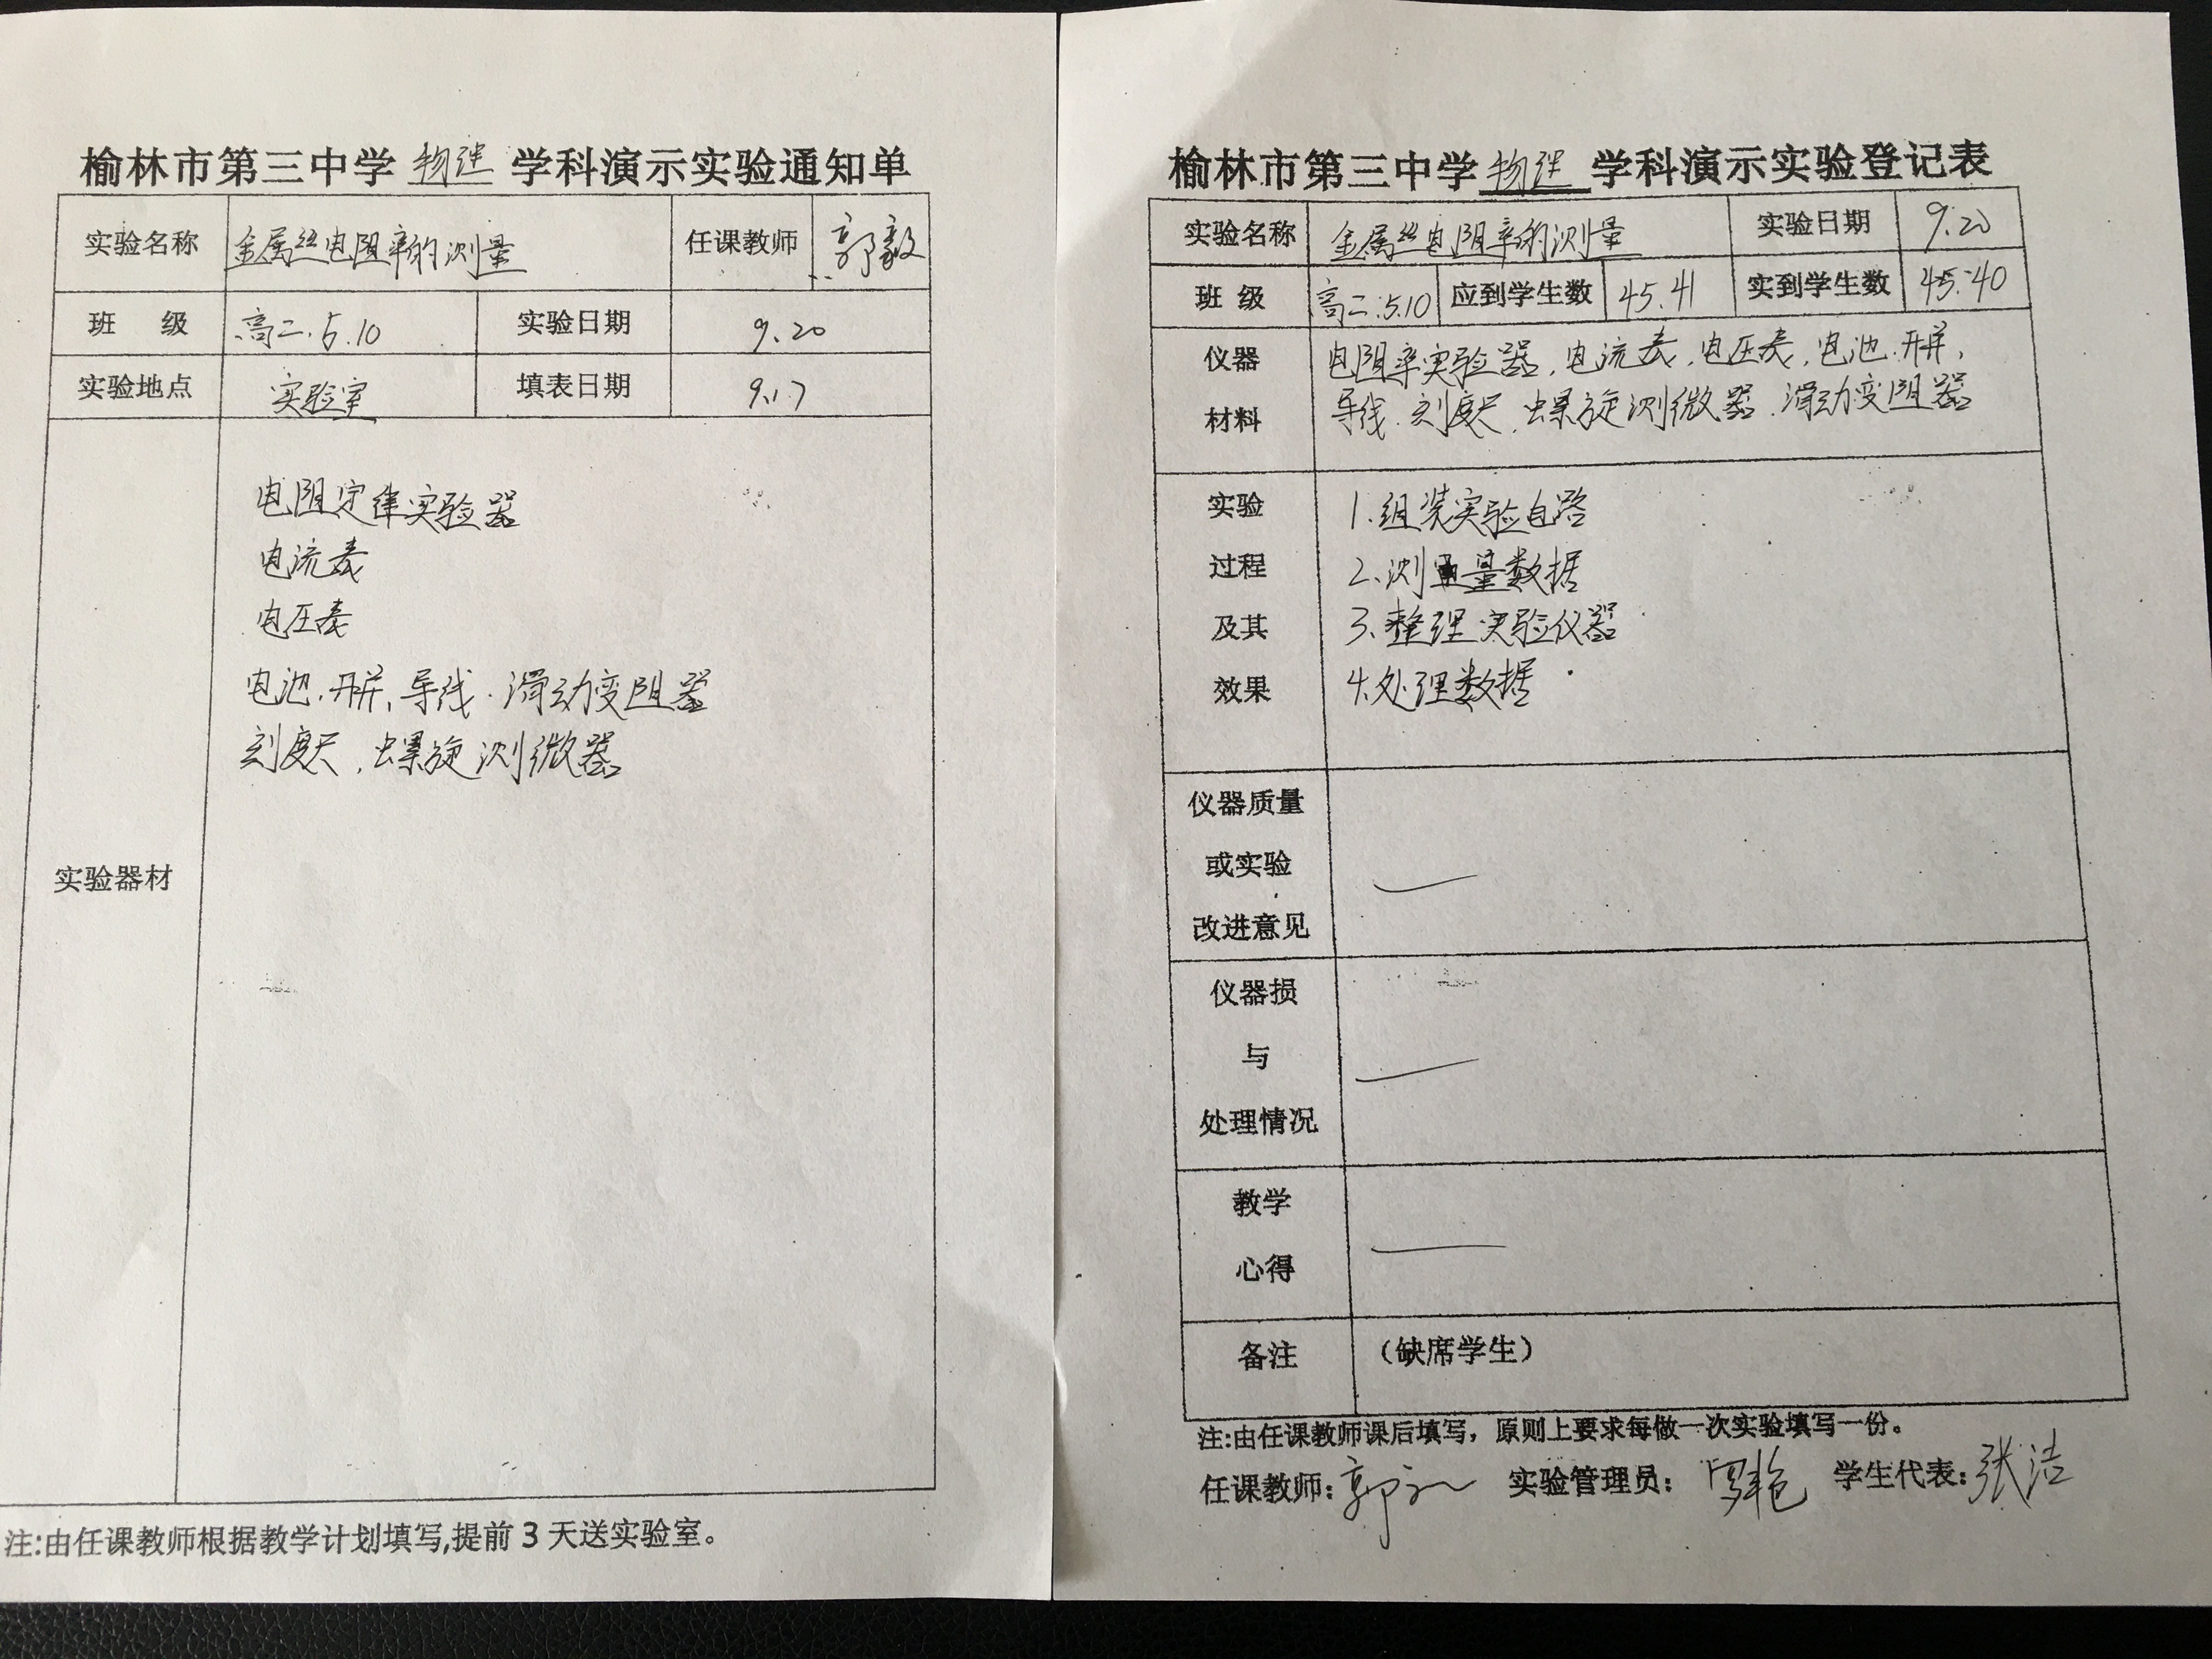 榆林市第三中学 物理 学科演示实验通知单
实验名称 金属丝电阻率的测量 任课教师 郭毅
班 级 高二.5.10 实验日期 9.20
实验地点 实验室 填表日期 9.17
电阻定律实验器
电流表
电压表
电池.开关,导线.滑动变阻器
刻度尺,螺旋测微器
实验器材
注:由任课教师根据教学计划填写,提前3天送实验室。
榆林市第三中学 物理 学科演示实验登记表
实验名称 金属丝电阻率的测量 实验日期 9.20
班 级 高二.5.10 应到学生数 45.41 实到学生数 45.40
仪器 电阻率实验器,电流表,电压表,电池.开关,
材料 导线.刻度尺.螺旋测微器.滑动变阻器
实验 1.组装实验电路
过程 2.测量数据
及其 3.整理实验仪器
效果 4.处理数据
仪器质量
或实验
改进意见
仪器损
与
处理情况
教学
心得
备注 （缺席学生）
注:由任课教师课后填写，原则上要求每做一次实验填写一份。
任课教师: 郭 实验管理员: 学生代表: 张洁